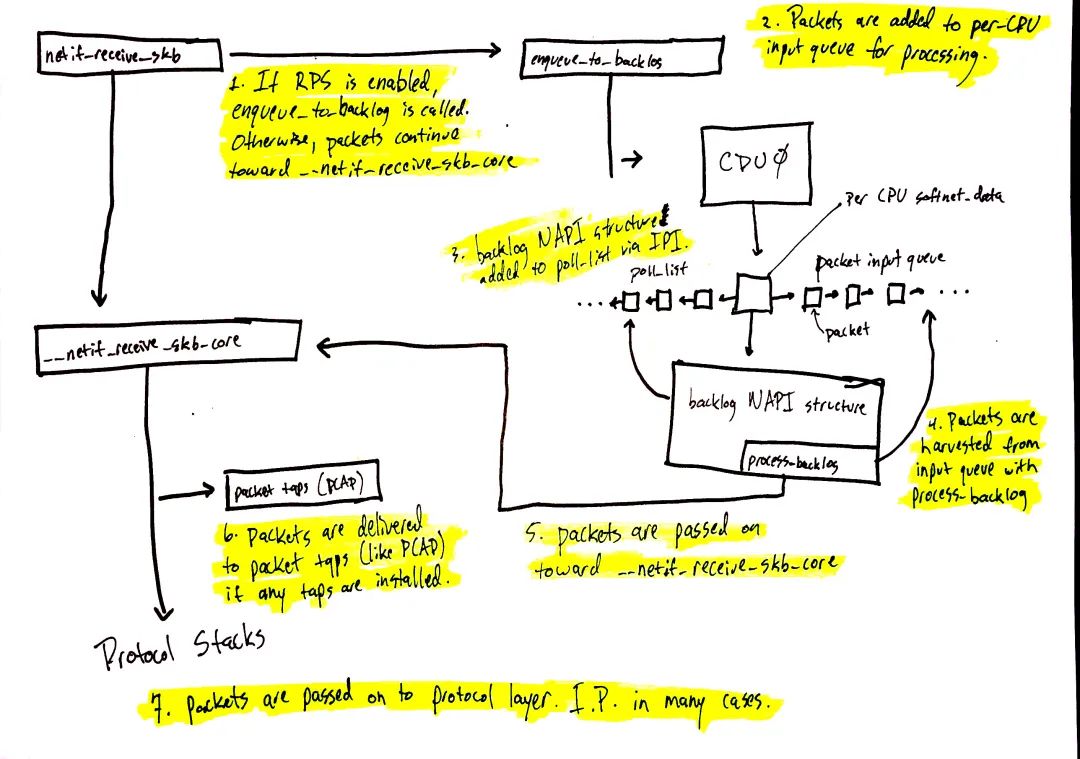 netif_receive_skb
enqueue_to_backlog
2. Packets are added to per-CPU
input queue for processing.
1. If RPS is enabled,
enqueue_to_backlog is called.
Otherwise, packets continue
toward __netif_receive_skb_core
CPU 0
per CPU softnet_data
3. backlog NAPI structure
added to poll_list via IPI.
poll_list
packet input queue
...
...
packet
__netif_receive_skb_core
backlog NAPI structure
process_backlog
4. Packets are
harvested from
input queue with
process_backlog
packet taps (PCAP)
6. Packets are delivered
to packet taps (like PCAP)
if any taps are installed.
5. packets are passed on
toward __netif_receive_skb_core
Protocol Stacks
7. packets are passed on to protocol layer. I.P. in many cases.